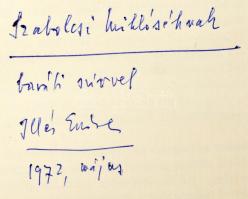 Szabolcsi Miklóséknak
baráti szívvel
Illés Endre
1972, május